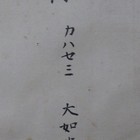 カハセミ 大如